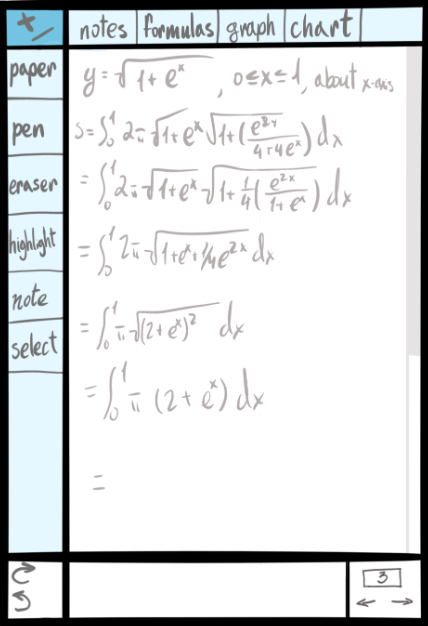 +/- notes formulas graph chart
paper
pen
eraser
highlight
note
select
y = √(1 + e^x) , 0 ≤ x ≤ 1, about x-axis
S = ∫₀¹ 2π √(1 + e^x) √(1 + (e^(2x)/(4 + 4e^x))) dx
= ∫₀¹ 2π √(1 + e^x) √(1 + 1/4 (e^(2x)/(1 + e^x))) dx
= ∫₀¹ 2π √(1 + e^x + 1/4 e^(2x)) dx
= ∫₀¹ π √((2 + e^x)²) dx
= ∫₀¹ π (2 + e^x) dx
=
3
← →